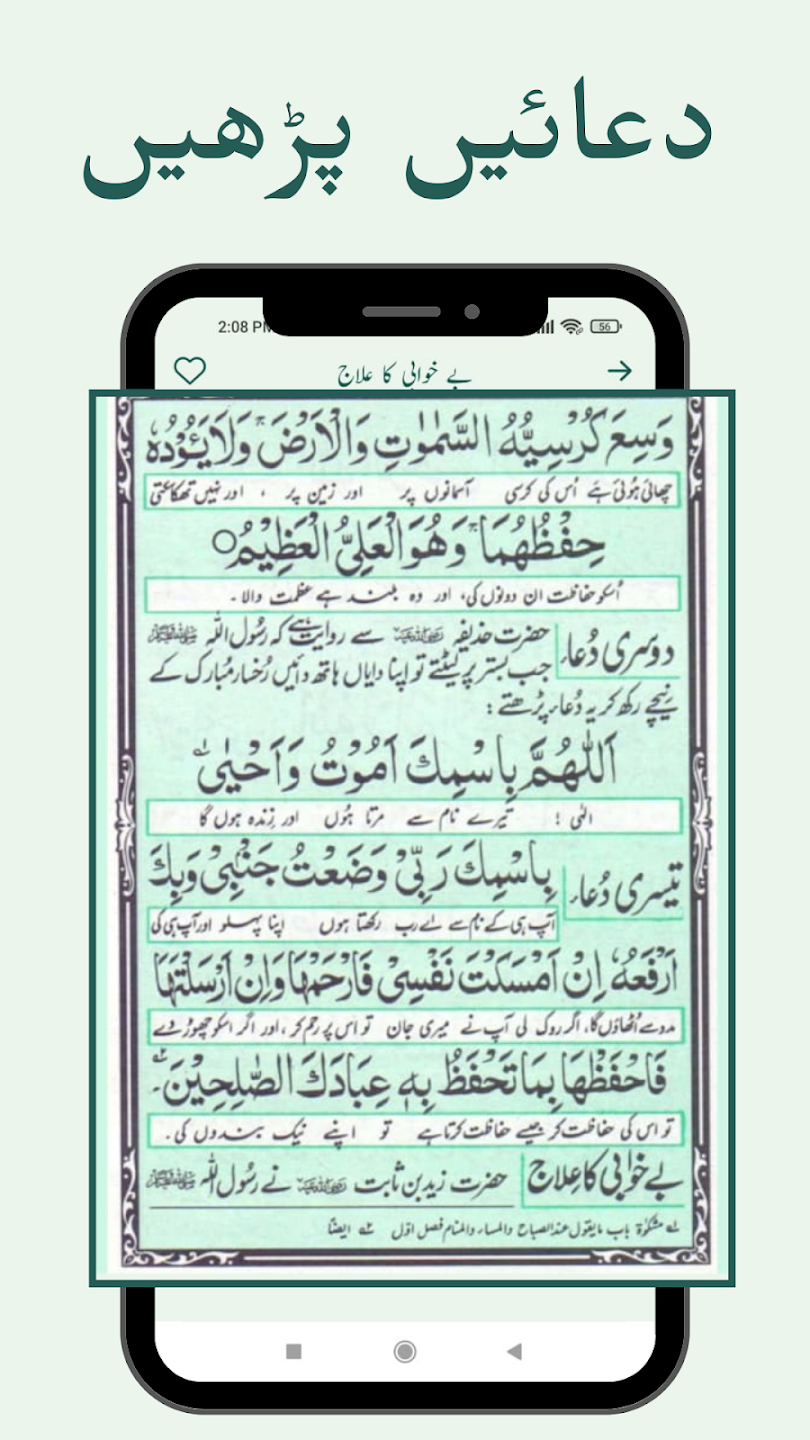 دعائیں پڑھیں
2:08 PM
56
بے خوابی کا علاج
وَسِعَ كُرْسِيُّهُ السَّمٰوٰتِ وَالْاَرْضَ ۚ وَلَا يَـُٔوْدُهٗ
چھائی ہوئی ہے اُس کی کرسی آسمانوں پر اور زمین پر ، اور نہیں تھکا سکتی
حِفْظُهُمَا ۚ وَهُوَ الْعَلِىُّ الْعَظِيْمُ ○
اُسکو حفاظت ان دونوں کی، اور وہ بلند ہے عظمت والا۔
دوسری دُعاء حضرت حذیفہ رضی اللہ عنہ سے روایت ہے کہ رسُول اللہ ﷺ
جب بستر پر لیٹتے تو اپنا دایاں ہاتھ دائیں رُخسار مُبارک کے
نیچے رکھ کر یہ دُعاء پڑھتے :
اَللّٰهُمَّ بِاسْمِكَ اَمُوْتُ وَاَحْيٰى ؎۱
الٰہی ! تیرے نام سے مرتا ہُوں اور زندہ ہوں گا
تیسری دُعاء بِاسْمِكَ رَبِّىْ وَضَعْتُ جَنْبِىْ وَبِكَ
آپ ہی کے نام سے اے رب رکھتا ہوں اپنا پہلو اور آپ ہی کی
اَرْفَعُهٗ اِنْ اَمْسَكْتَ نَفْسِىْ فَارْحَمْهَا وَاِنْ اَرْسَلْتَهَا
مدد سے اُٹھاؤں گا، اگر روک لی آپ نے میری جان تو اس پر رحم کر ، اور اگر اسکو چھوڑ دے
فَاحْفَظْهَا بِمَا تَحْفَظُ بِهٖ عِبَادَكَ الصّٰلِحِيْنَ ۔ ؎۲
تو اس کی حفاظت کر جیسے حفاظت کرتا ہے تو اپنے نیک بندوں کی۔
بے خوابی کا عِلاج حضرت زید بن ثابت رضی اللہ عنہ نے رسُول اللہ ﷺ
؎۱ مشکوٰة باب مایقول عند الصباح والمساء والمنام فصل اوّل ؎۲ ایضًا